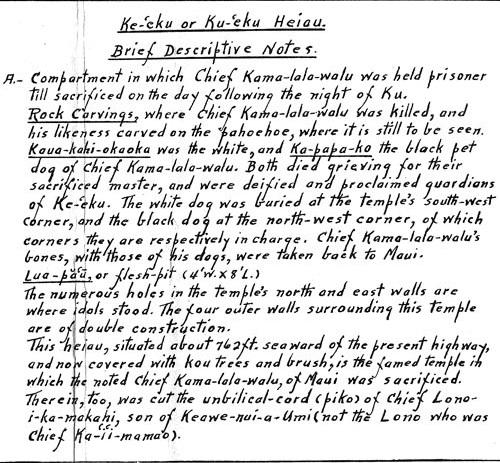 Ke-ʻeku or Ku-ʻeku Heiau.
Brief Descriptive Notes.
A.- Compartment in which Chief Kama-lala-walu was held prisoner
till sacrificed on the day following the night of Ku.
Rock Carvings, where Chief Kama-lala-walu was killed, and
his likeness carved on the pahoehoe, where it is still to be seen.
Kaua-kahi-okaoka was the white, and Ka-papa-ko the black pet
dog of Chief Kama-lala-walu. Both died grieving for their
sacrificed master, and were deified and proclaimed guardians
of Ke-ʻeku. The white dog was buried at the temple's south-west
corner, and the black dog at the north-west corner, of which
corners they are respectively in charge. Chief Kama-lala-walu's
bones, with those of his dogs, were taken back to Maui.
Lua-pāū, or flesh-pit (4'W. X 8'L.)
The numerous holes in the temple's north and east walls are
where idols stood. The four outer walls surrounding this temple
are of double construction.
This heiau, situated about 762ft. seaward of the present highway,
and now covered with kou trees and brush, is the famed temple in
which the noted Chief Kama-lala-walu, of Maui was sacrificed.
Therein, too, was cut the unbilical-cord (piko) of Chief Lono-
i-ka-makahi, son of Keawe-nui-a-Umi (not the Lono who was
Chief Ka-ʻiʻi-mamao).